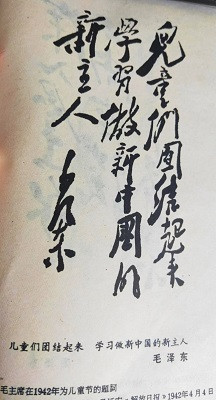 兒童們團結起来
學習做新中國的
新主人
毛澤东
儿童们团结起来 学习做新中国的新主人
毛泽东
毛主席在1942年为儿童节的题词
《解放日报》1942年4月4